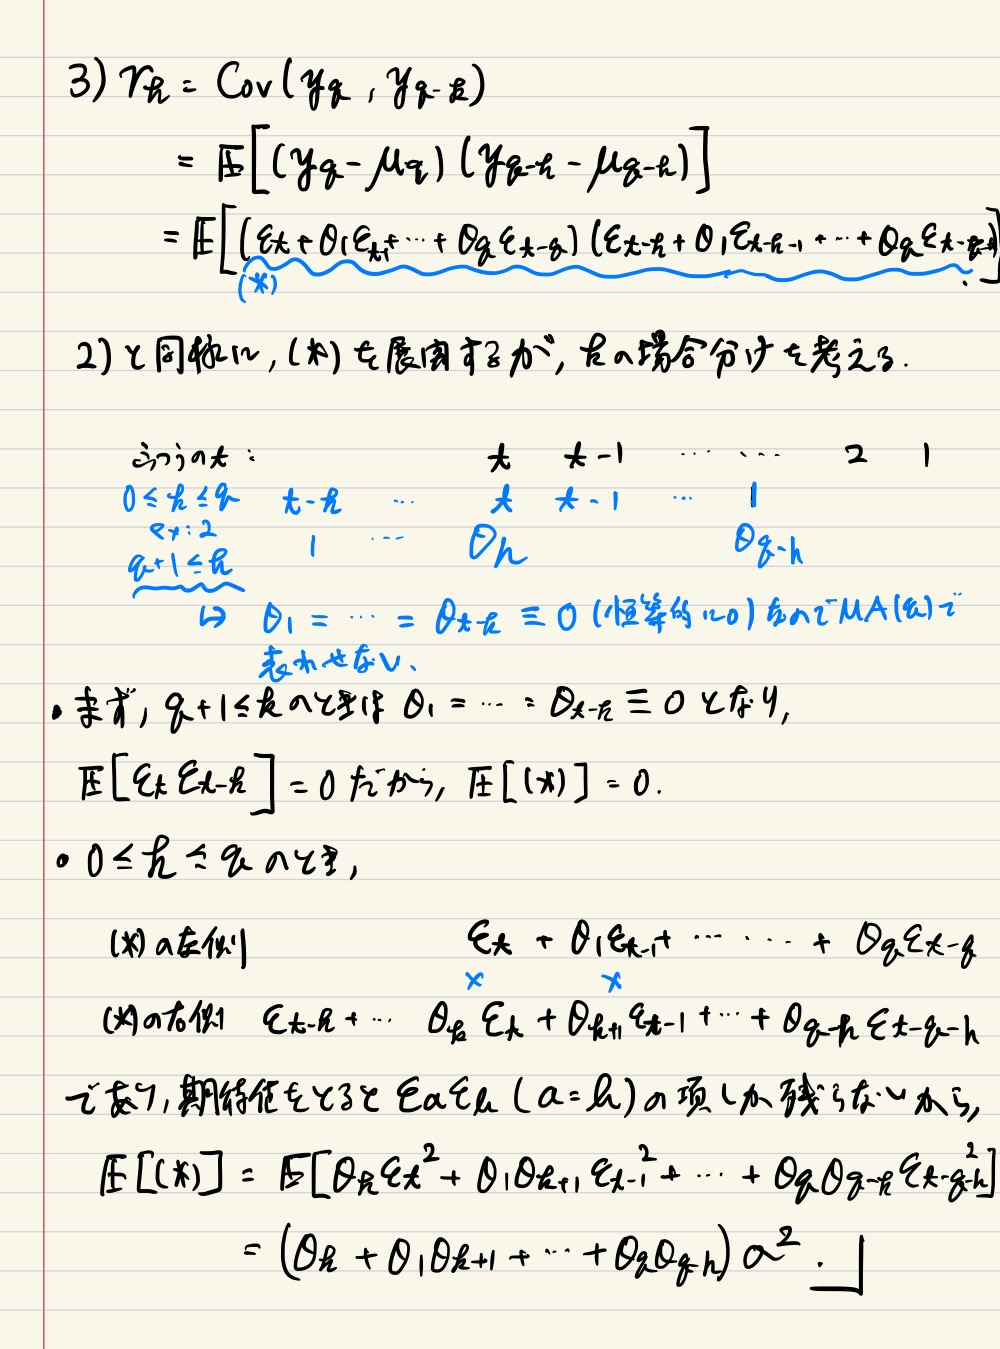 3) γₕ = Cov(y_q, y_{q-h})
= 𝔼[(y_q - μ_q)(y_{q-h} - μ_{q-h})]
= 𝔼[(ε_t + θ₁ε_{t-1} + ⋯ + θ_qε_{t-q})(ε_{t-h} + θ₁ε_{t-h-1} + ⋯ + θ_qε_{t-q-h})]
(*)
2)と同様に, (*)を展開するが, hの場合分けを考える.
ふつうのt: t t-1 ⋯ ⋯ 2 1
0≦h≦q t-h ⋯ t t-1 ⋯ 1
ex:2 1 ⋯ θ_h θ_{q-h}
q+1≦h
↳ θ₁ = ⋯ = θ_{t-h} ≡ 0 (恒等的に0) なのでMA(q)で
表わせない、
• まず, q+1≦hのときは θ₁ = ⋯ = θ_{t-h} ≡ 0 となり,
𝔼[ε_t ε_{t-h}] = 0 だから, 𝔼[(*)] = 0.
• 0≦h≦q のとき,
(*)の左側 ε_t + θ₁ε_{t-1} + ⋯ ⋯ + θ_qε_{t-q}
× ×
(*)の右側 ε_{t-h} + ⋯ θ_h ε_t + θ_{h+1} ε_{t-1} + ⋯ + θ_{q-h} ε_{t-q-h}
であり, 期待値をとると ε_aε_b (a=b)の項しか残らないから,
𝔼[(*)] = 𝔼[θ_hε_t² + θ₁θ_{h+1} ε_{t-1}² + ⋯ + θ_qθ_{q-h} ε_{t-q-h}²]
= (θ_h + θ₁θ_{h+1} + ⋯ + θ_qθ_{q-h}) σ². 」